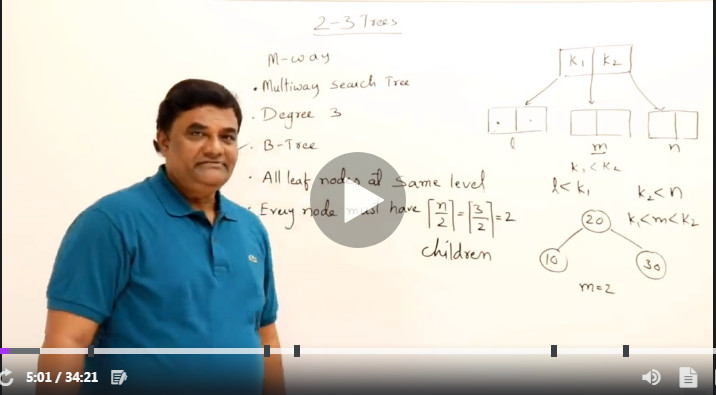 2-3 Trees
M-way
• Multiway Search Tree
• Degree 3
• B-Tree
• All leaf nodes at same level
• Every node must have ⌈n/2⌉=⌈3/2⌉=2
children
k₁ k₂
l m n
k₁<k₂
l<k₁ k₂<n
k₁<m<k₂
20
10 30
m=2
5:01 / 34:21